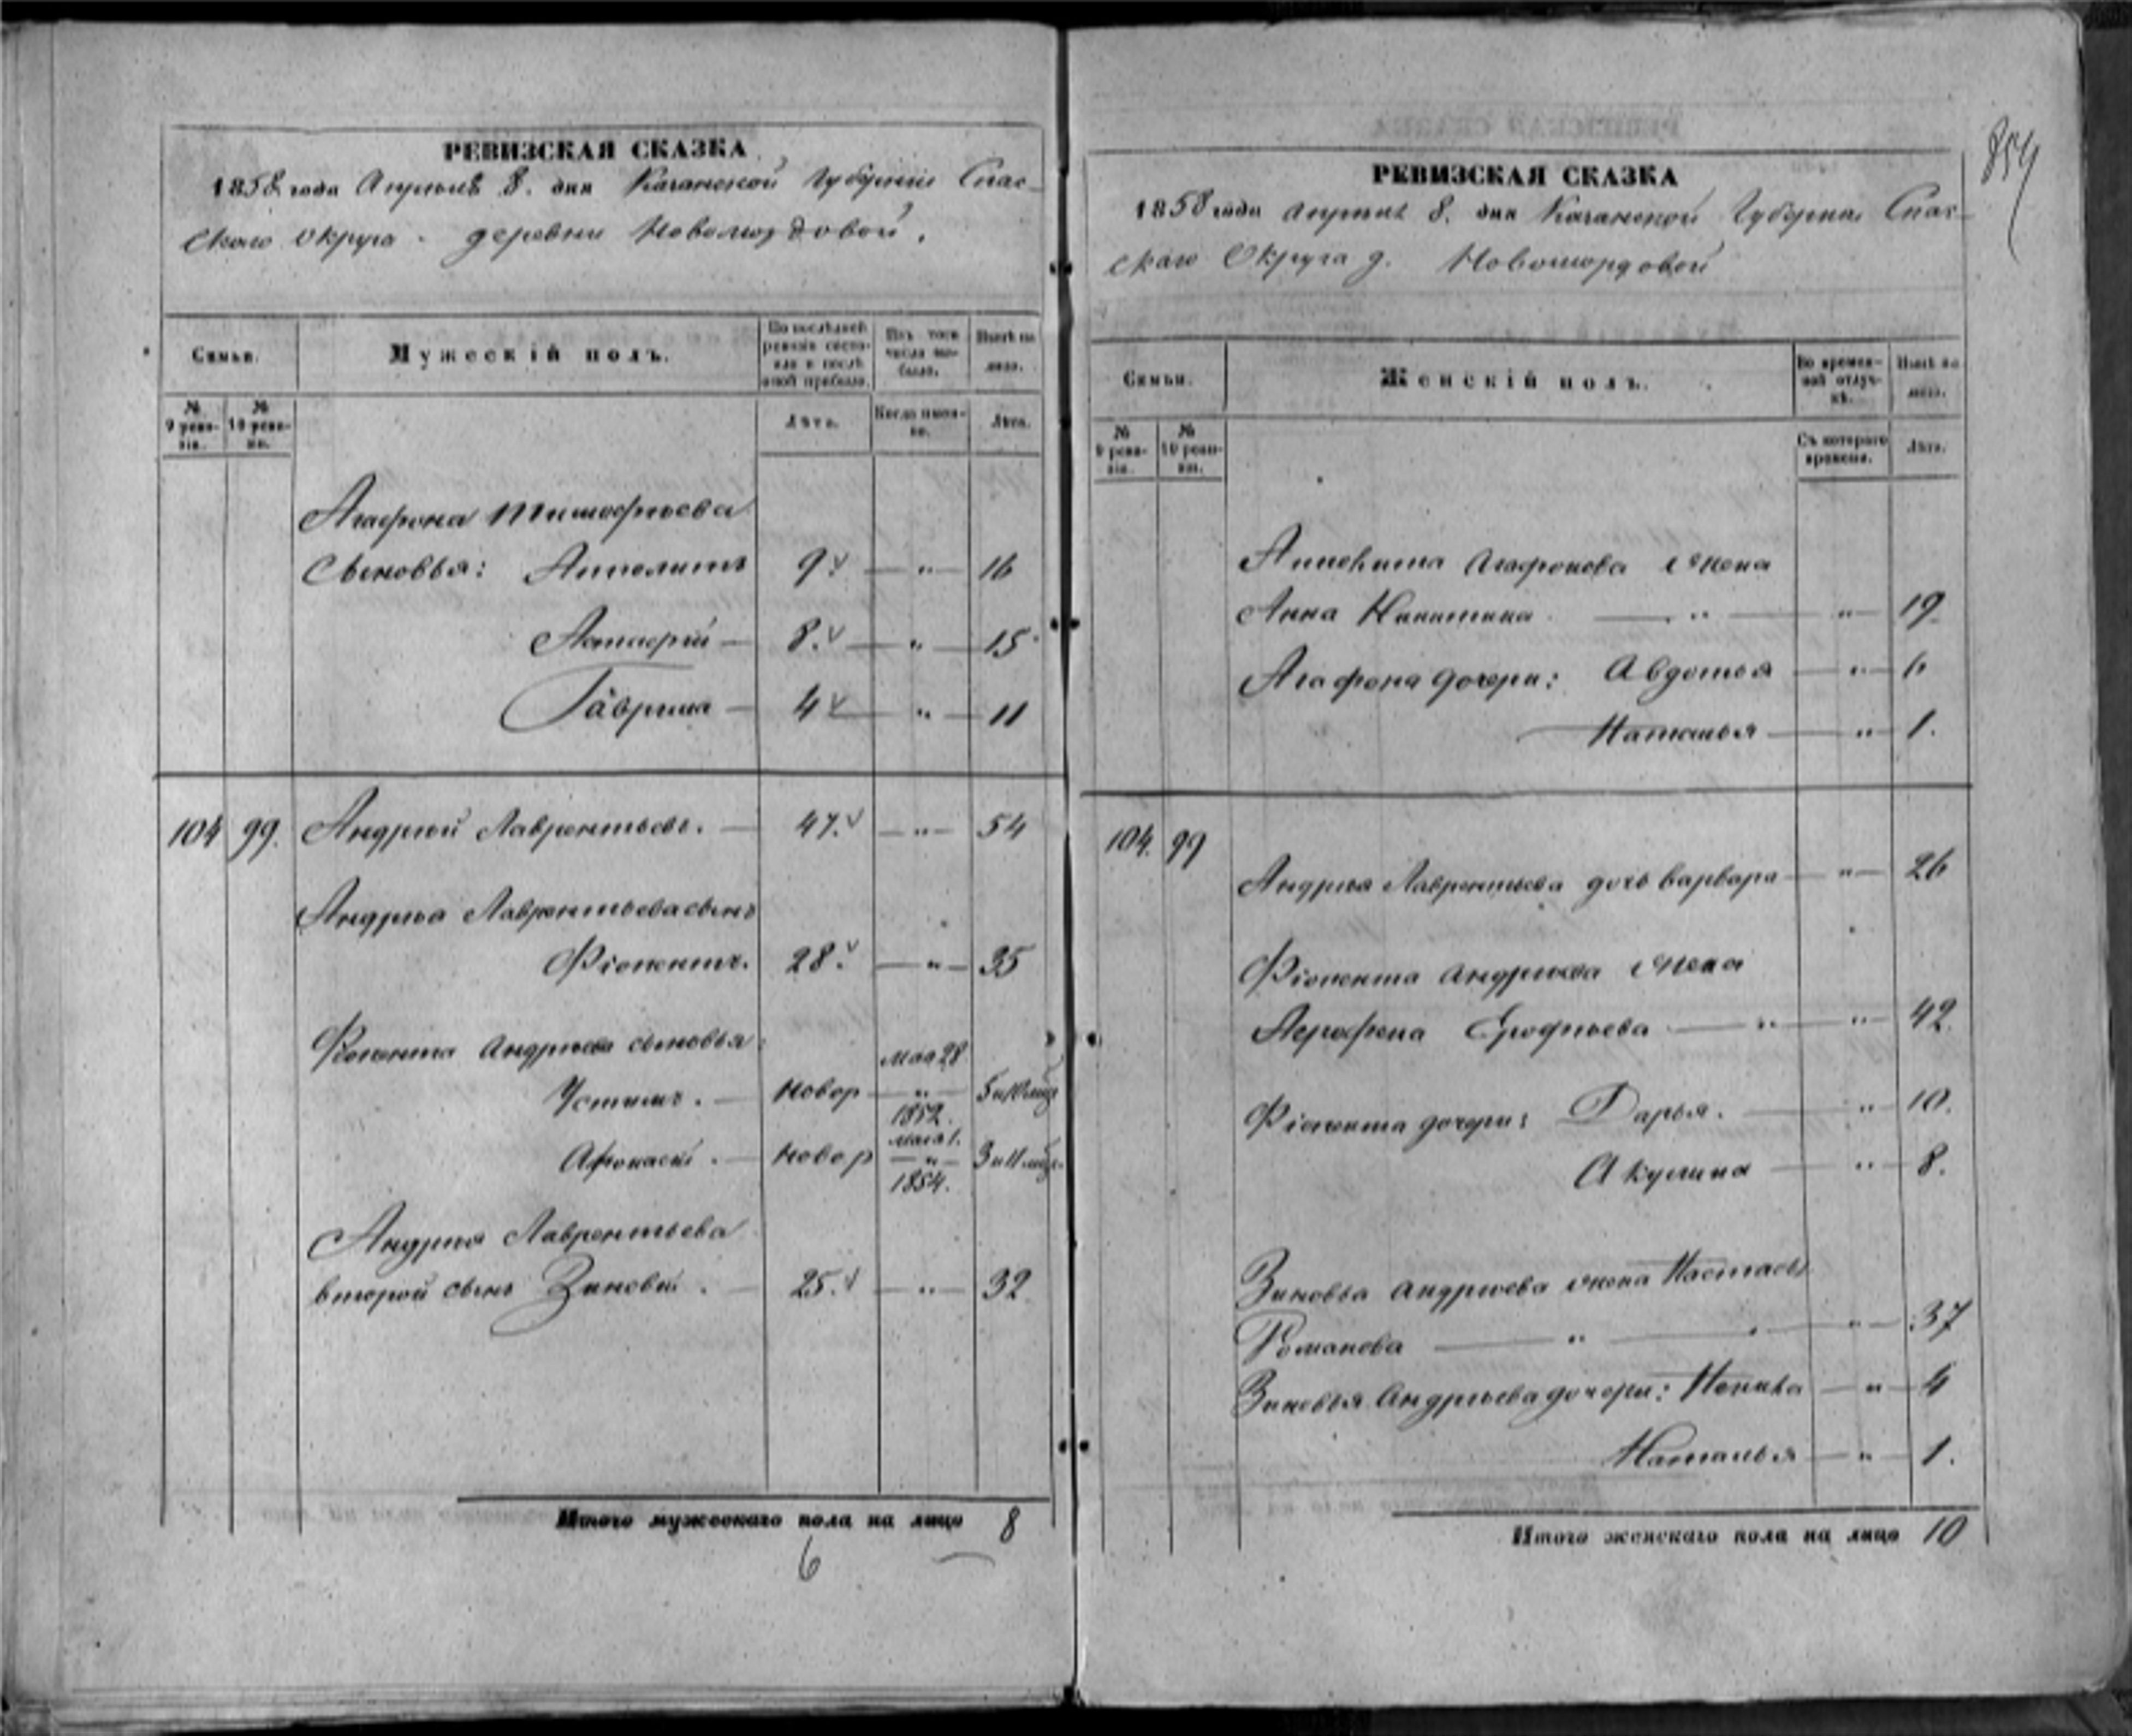 РЕВИЗСКАЯ СКАЗКА
1858 года Апреля 8. дня Казанской Губернии Спас-
скаго округа деревни Новомордовой.
Семьи.
Мужескій полъ.
По послѣдней ревизіи состояло и послѣ оной прибыло.
Изъ того числа выбыло.
Нынѣ на лицо.
№ 9 ревизіи.
№ 10 ревизіи.
Лѣта.
Когда именно.
Лѣта.
Агафона Тимофѣева
Сыновья: 9 — " — 16
Астафій — 8. — " — 15
Гаврила — 4 — " — 11
104 99. Андрѣй Лаврентьевъ. — 47. — " — 54
Андрѣя Лаврентьева сынъ
28. — " — 35
Андрѣева сыновья:
мая 28
Устинъ. — новор — " — 5 и 10 мѣс
1852.
мая 1.
Афонасій. — новор — " — 3 и 11 мѣс.
1854.
Андрѣя Лаврентьева
второй сынъ Зиновій. — 25. — " — 32
Итого мужескаго пола на лицо 8
6
854
РЕВИЗСКАЯ СКАЗКА
1858 года апреля 8. дня Казанской Губернии Спас-
скаго Округа д. Новомордовой
Семьи.
Женскій полъ.
Во временной отлучкѣ.
Нынѣ на лицо.
№ 9 ревизіи.
№ 10 ревизіи.
Съ котораго времени.
Лѣта.
Агафонова жена
Анна Никитина — " — " — 19
Агафона дочери: Авдотья — " — 6
Наталья — " — 1.
104. 99
Андрѣя Лаврентьева дочь варвара — " — 26
Андрѣева жена
Аграфена Ерофѣева — " — " — 42.
дочери: Дарья. — " — 10.
Акулина — " — 8.
Зиновья андрѣева жена Настасья
Романова — " — " — 37
Зиновья Андрѣева дочери: — " — 4
Наталья — " — 1.
Итого женскаго пола на лицо 10